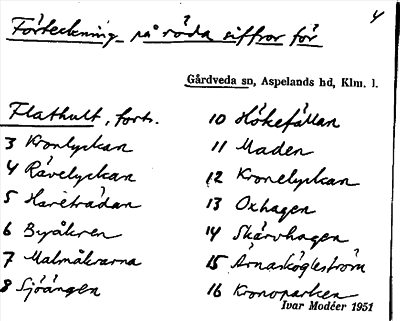 4
Förteckning på röda siffror för
Gårdveda sn, Aspelands hd, Klm. l.
Flathult, forts.
3 Kronlyckan
4 Rävelyckan
5 Hareträdan
6 Byåkren
7 Malmåkrarna
8 Sjöängen
10 Hökefällan
11 Maden
12 Kronelyckan
13 Oxhagen
14 Skärvhagen
15 Arnaskögleström
16 Kronoparken
Ivar Modéer 1951